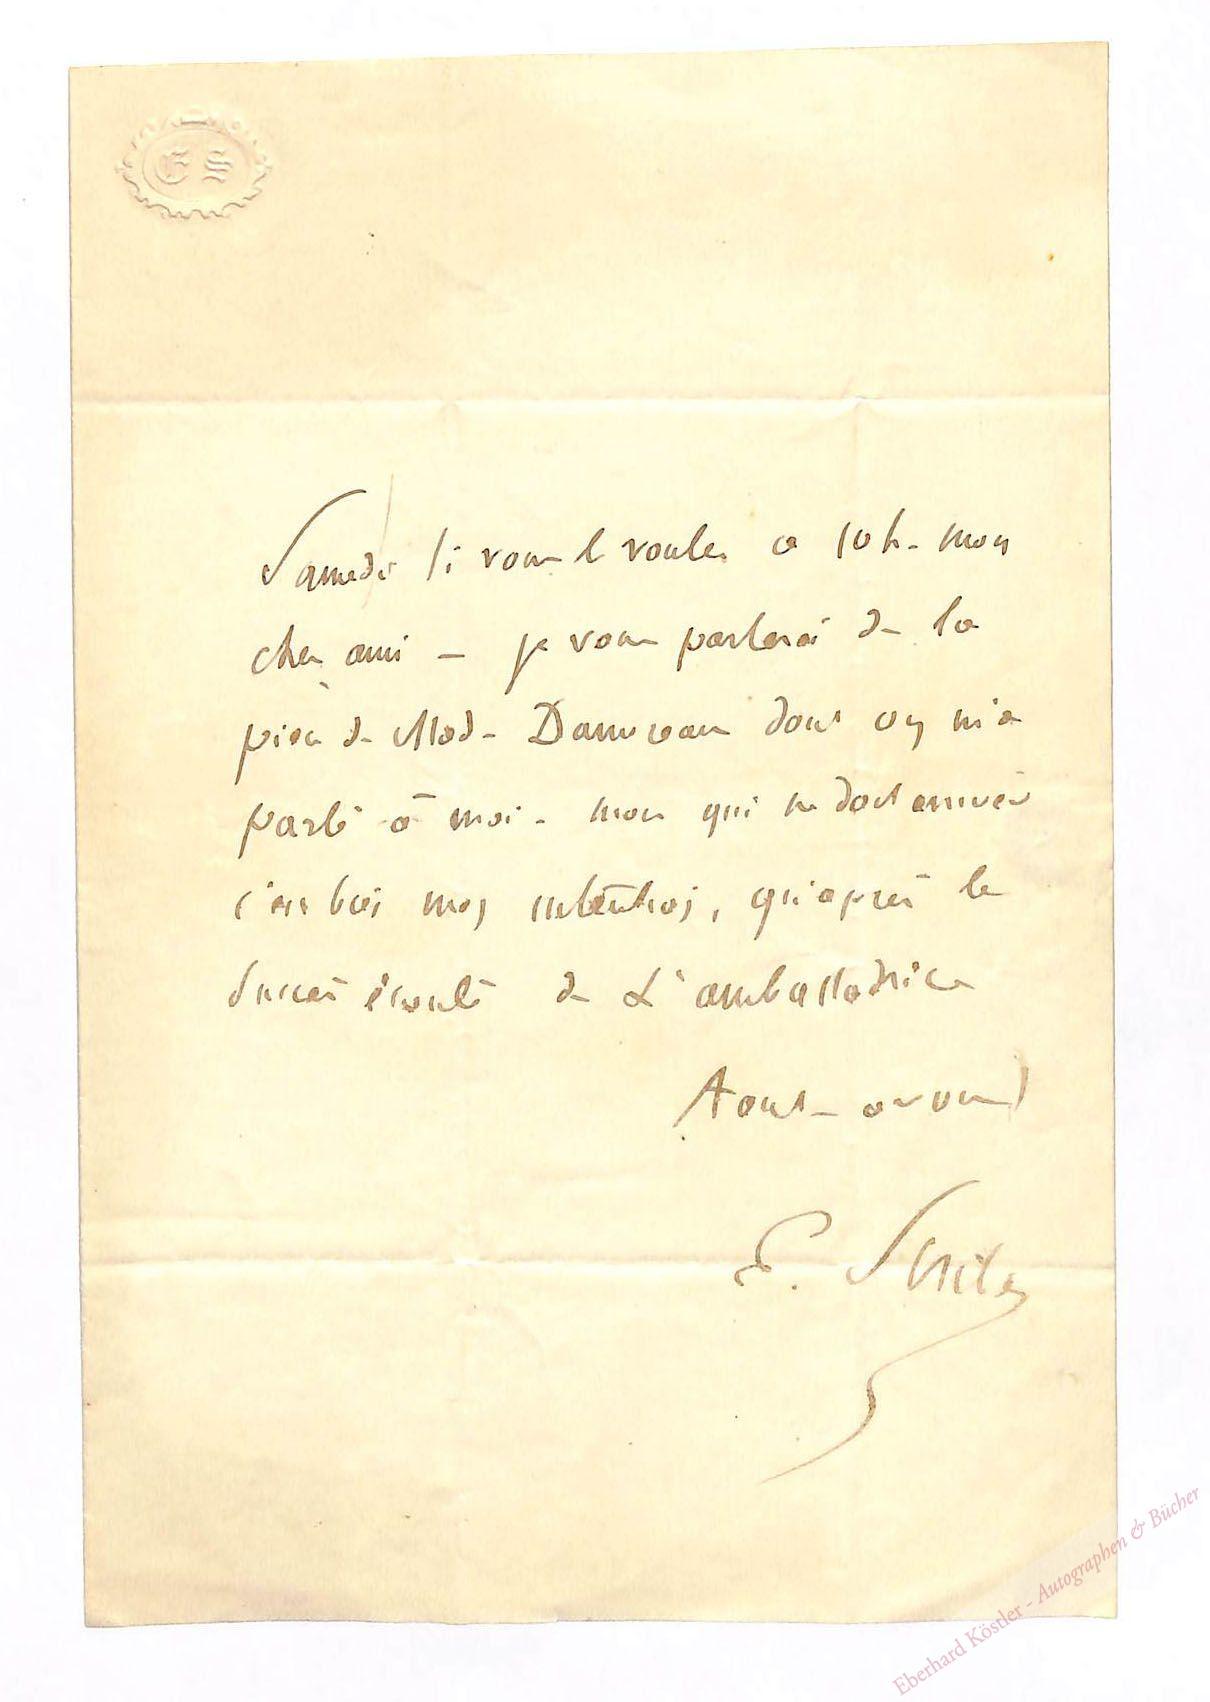 E S
Samedi si vous le voulez a 10 h. mon
cher ami — je vous parlerai de la
pièce de Mad. Damoreau dont on m'a
parlé à moi. mais qui ne doit arriver
c'est bien mes intentions, qu'après le
succès écoulé de L'ambassadrice
Tout à vous
E. Scribe
Eberhard Köstler - Autographen & Bücher